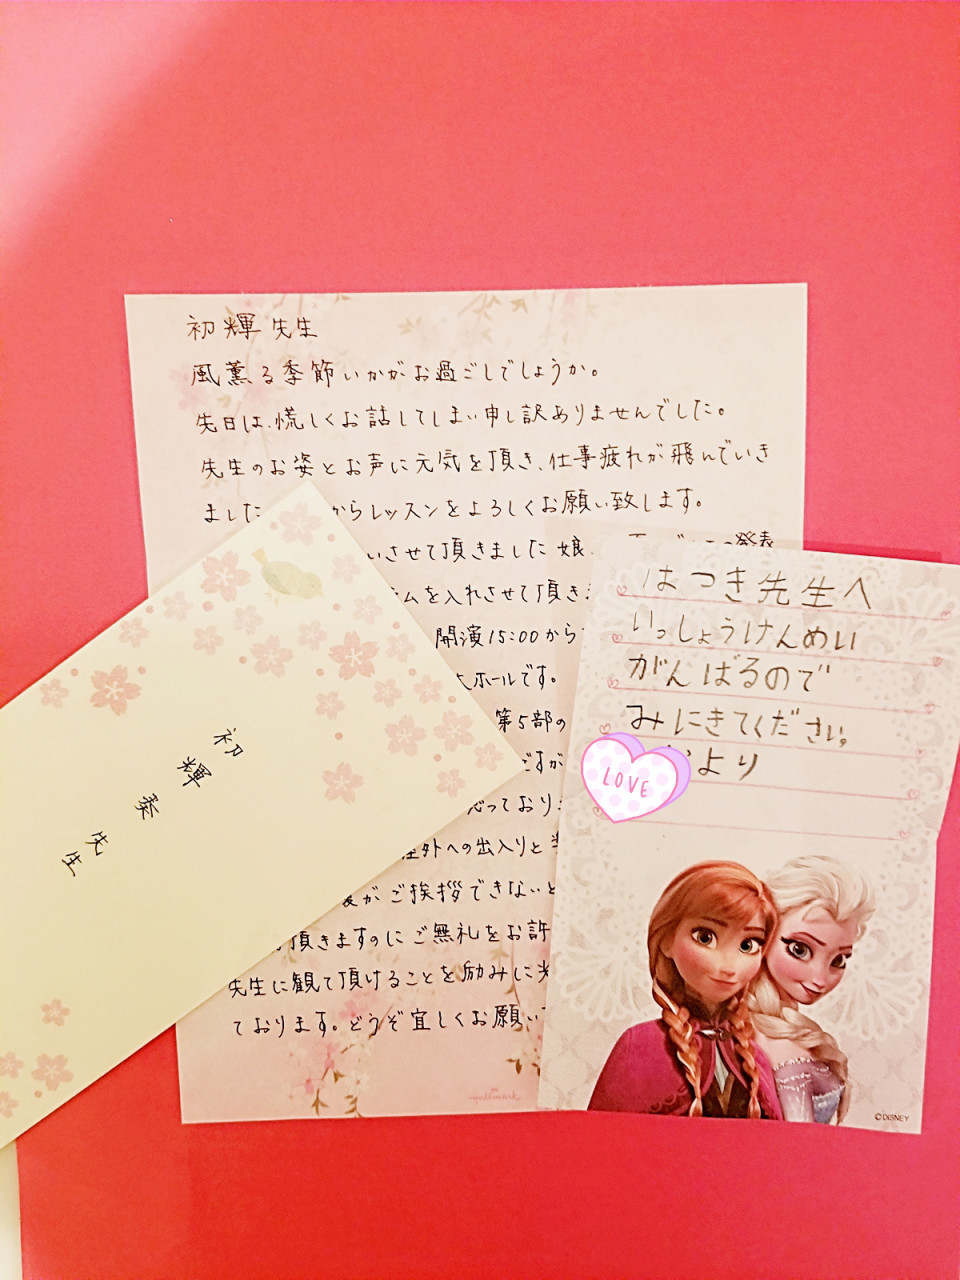 初輝先生
風薫る季節いかがお過ごしでしょうか。
先日は、慌しくお話してしまい申し訳ありませんでした。
先生のお姿とお声に元気を頂き、仕事疲れが飛んでいき
ました
からレッスンをよろしくお願い致します。
いさせて頂きました娘、
発表
ムを入れさせて頂き
開演15:00から
大ホールです。
第5部の
ですが
思っており
室外への出入りと
がご挨拶できないと
頂きますのにご無礼をお許
先生に観て頂けることを励みに
ております。どうぞ宜しくお願い
Hallmark
初輝 先生
はつき先生へ
いっしょうけんめい
がんばるので
みにきてください。
より
LOVE
©DISNEY